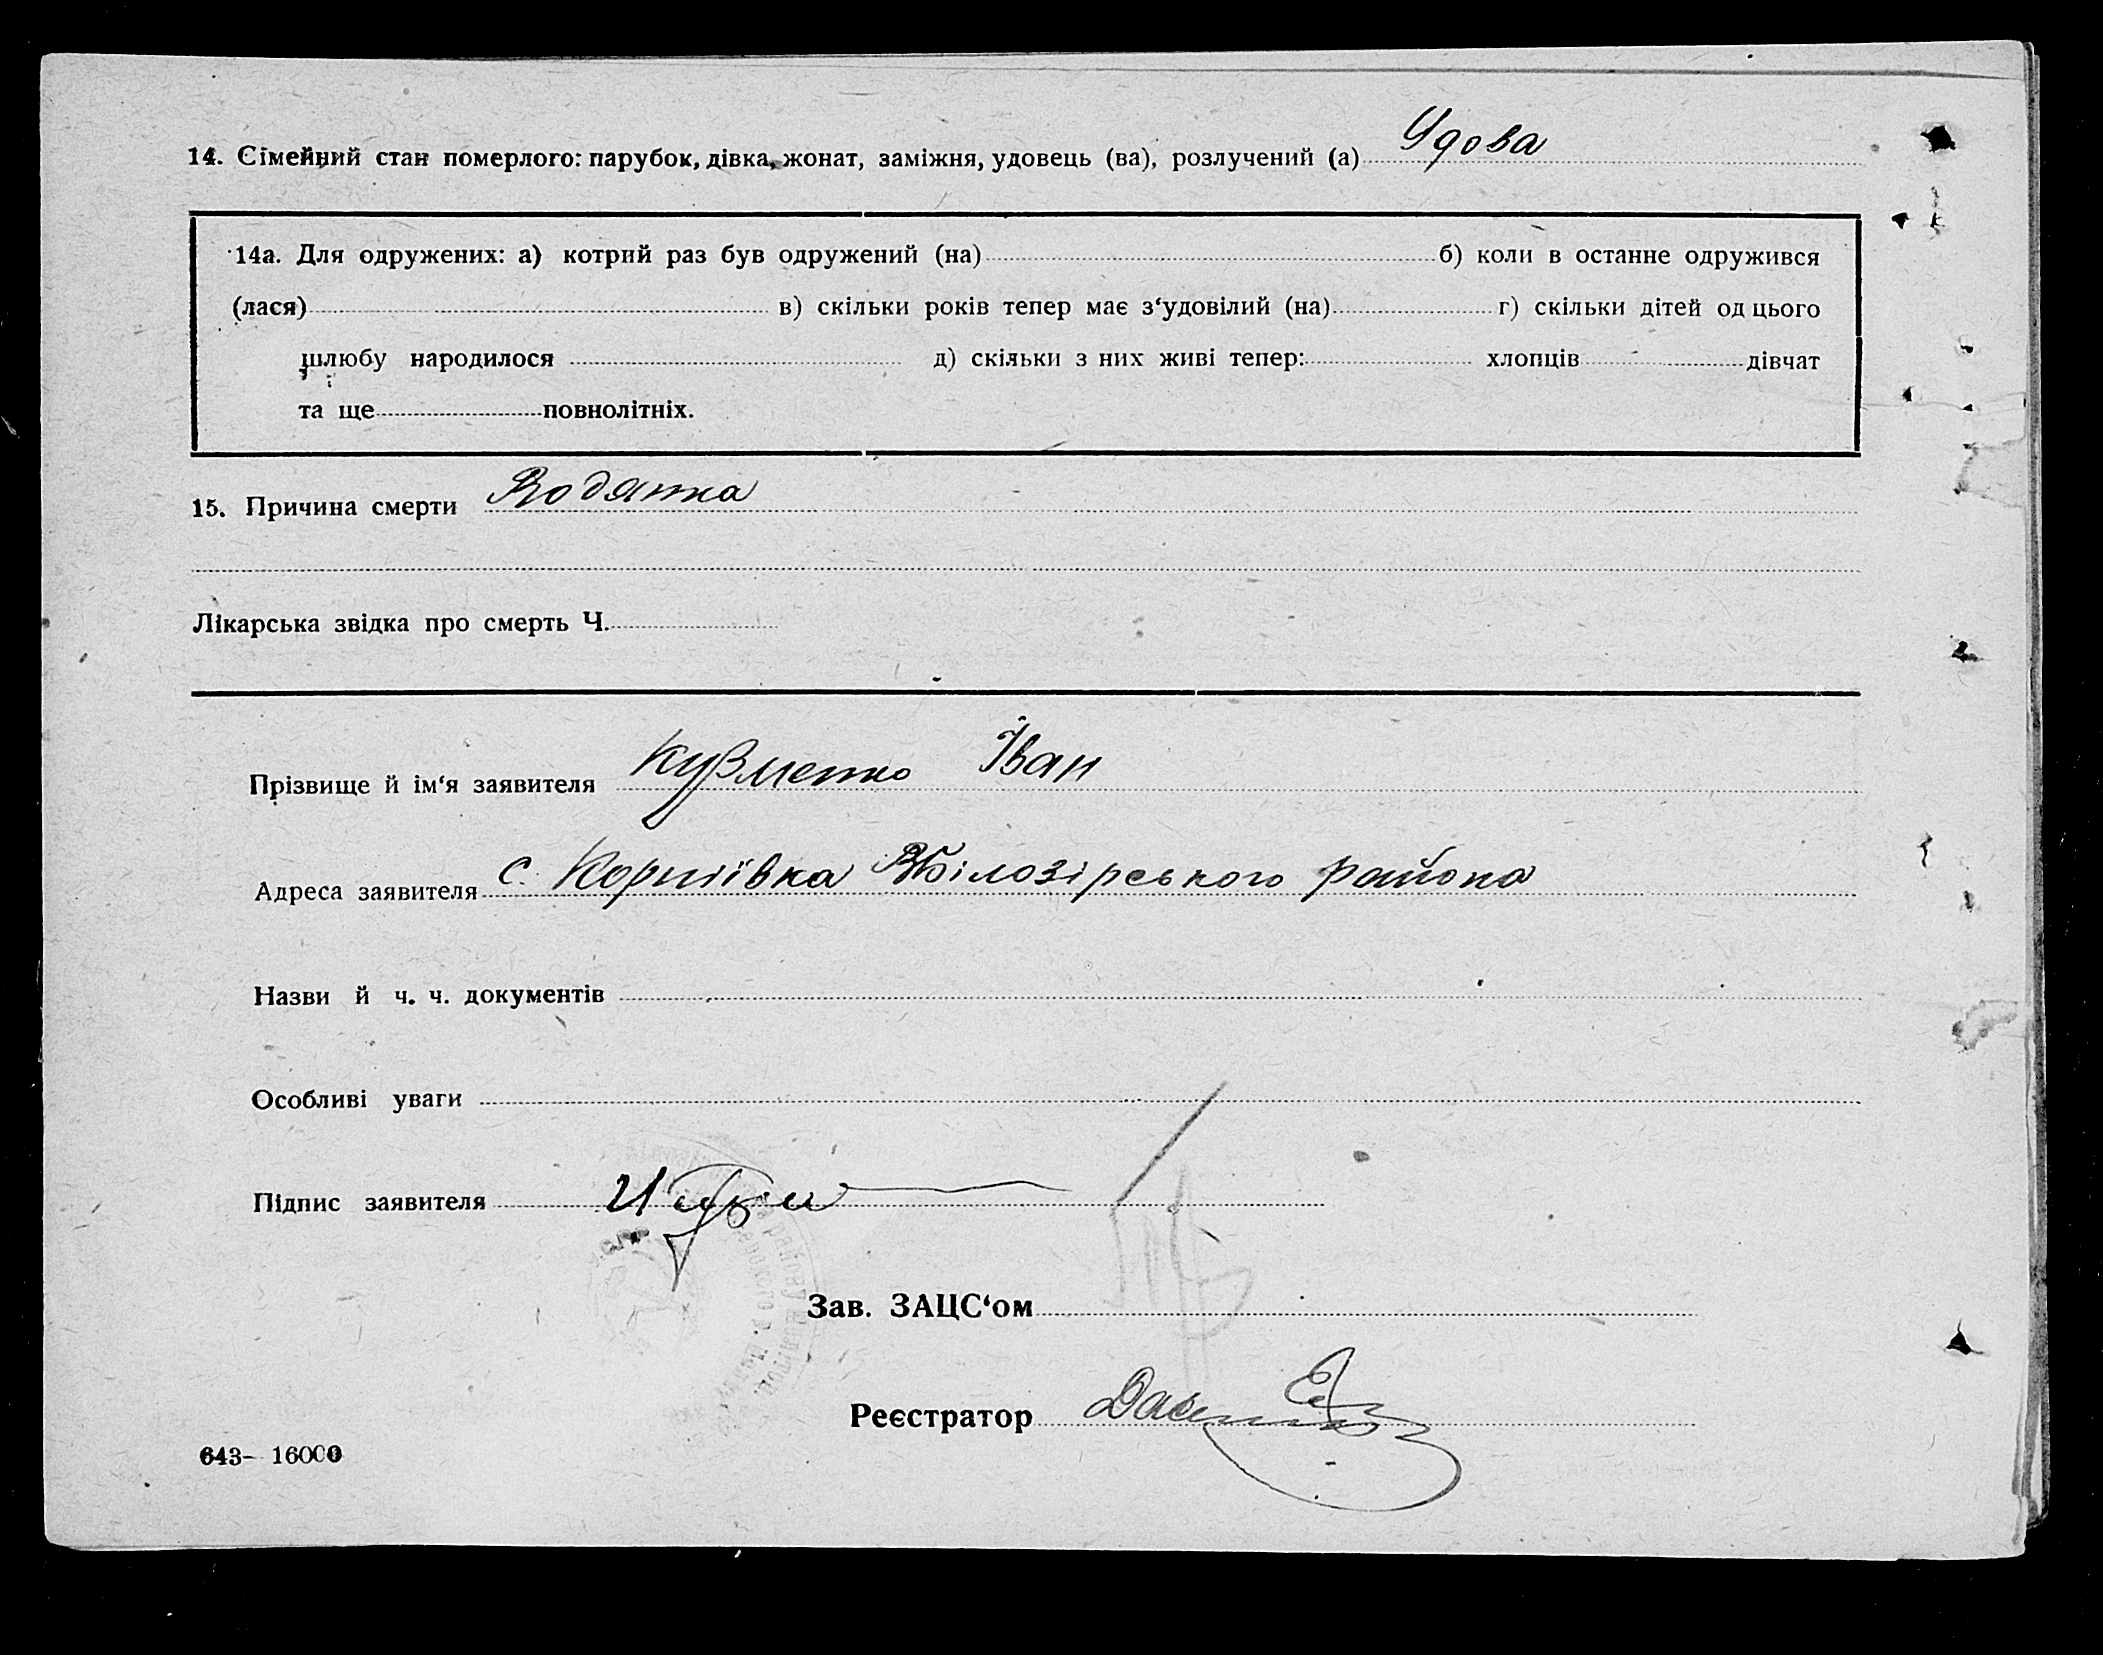 14. Сімейний стан померлого: парубок, дівка, жонат, заміжня, удовець (ва), розлучений (а) Удова
14а. Для одружених: а) котрий раз був одружений (на) б) коли в останне одружився
(лася) в) скільки років тепер має з‘удовілий (на) г) скільки дітей од цього
шлюбу народилося д) скільки з них живі тепер: хлопців дівчат
та ще повнолітніх.
15. Причина смерти Водянка
Лікарська звідка про смерть Ч.
Прізвище й ім‘я заявителя Кузменко Іван
Адреса заявителя с. Корніївка Білозірського района
Назви й ч. ч. документів
Особливі уваги
Підпис заявителя
Зав. ЗАЦС‘ом
Реєстратор
643- 16000